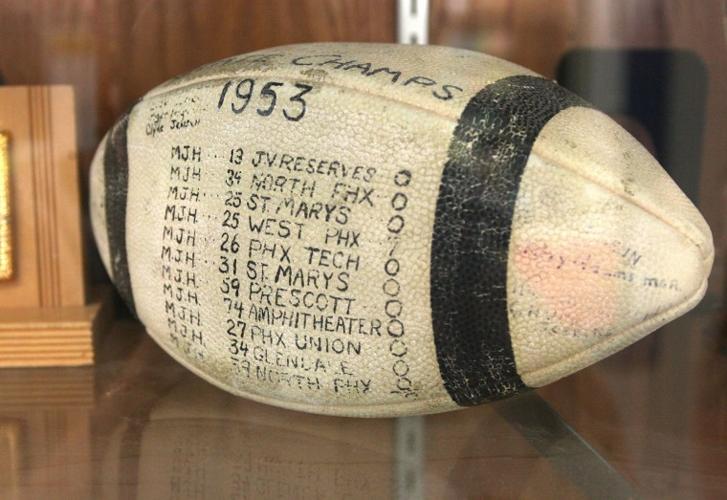 CHAMPS
1953
MJH 13 JV RESERVES 0
MJH 34 NORTH PHX 0
MJH 25 ST MARYS 0
MJH 25 WEST PHX 7
MJH 26 PHX TECH 0
MJH 31 ST. MARYS 0
MJH 59 PRESCOTT 0
MJH 74 AMPHITHEATER 0
MJH 27 PHX UNION 0
MJH 34 GLENDALE 0
39 NORTH PHX